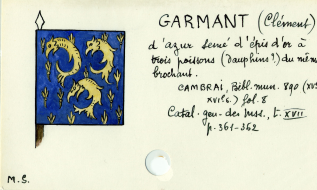 GARMANT (Clément)
d'azur semé d'épis d'or à
trois poissons (dauphins?) du même
brochant.
CAMBRAI, Bibl. mun. 890 (XVe
XVIe s.) fol. 8
Catal. gén. des mss., t. XVII
p. 361-362
M.S.